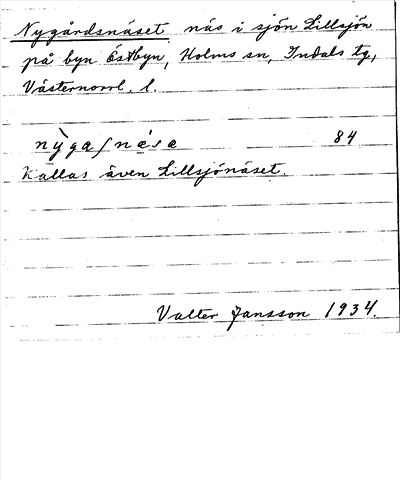 Nygårdsnäset näs i sjön Lillsjön
på byn Östbyn, Holms sn, Indals tg,
Västernorrl. l.
nỳgaʃnæ̀sa 84
Kallas även Lillsjönäset.
Valter Jansson 1934.